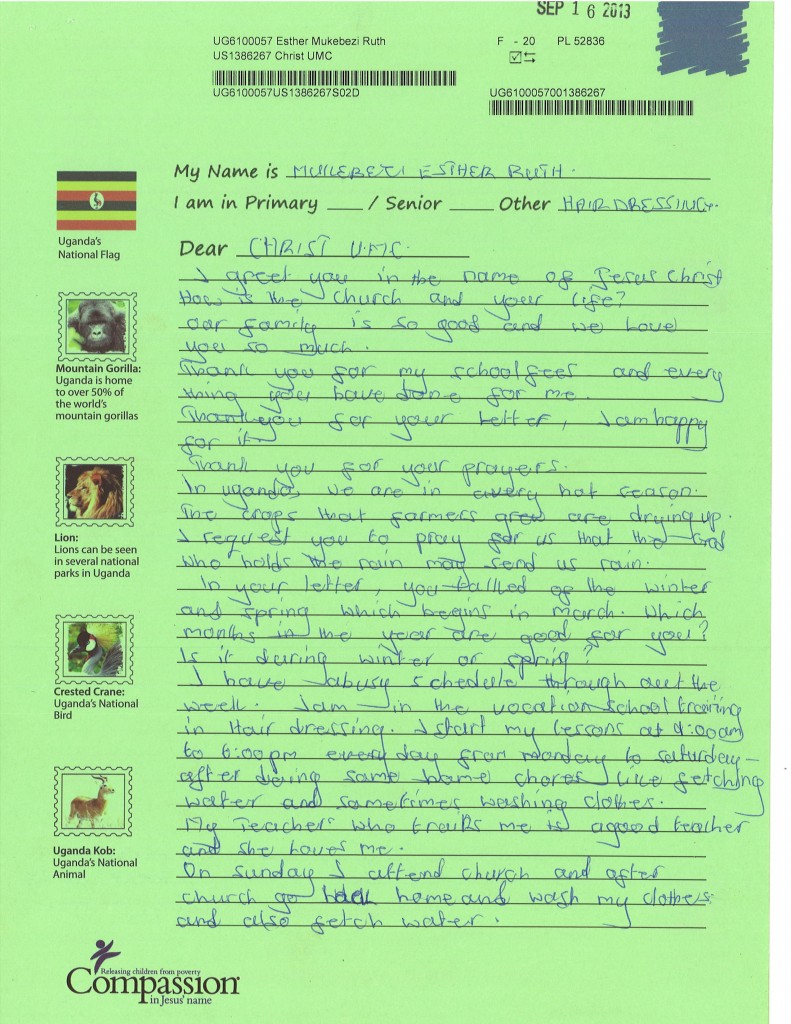 SEP 16 2013
UG6100057 Esther Mukebezi Ruth
US1386267 Christ UMC
F - 20 PL 52836
UG6100057US1386267S02D
UG6100057001386267
My Name is MUKEBEZI ESTHER RUTH.
I am in Primary ___ / Senior ___ Other HAIR DRESSING.
Dear CHRIST U.M.C.
I greet you in the name of Jesus Christ
How is the church and your life?
Our family is so good and we love
you so much.
Thank you for my school fees and every
thing you have done for me.
Thank you for your letter, I am happy
for it
Thank you for your prayers.
In uganda, we are in a very hot season.
The crops that farmers grew are drying up.
I request you to pray for us that the God
who holds the rain may send us rain.
In your letter, you tallled of the winter
and spring which begins in march. Which
months in the year are good for you?
Is it during winter or spring?
I have abusy schedule through out the
week. I am in the vocation school training
in Hair dressing. I start my lessons at 9:00am
to 6:00pm every day from monday to saturday -
after doing some home chores like fetching
water and sometimes washing clothes.
My Teacher who trails me is a good teacher
and she loves me.
On sunday I attend church and after
church go back home and wash my clothes
and also fetch water.
Uganda's
National Flag
Mountain Gorilla:
Uganda is home
to over 50% of
the world's
mountain gorillas
Lion:
Lions can be seen
in several national
parks in Uganda
Crested Crane:
Uganda's National
Bird
Uganda Kob:
Uganda's National
Animal
Releasing children from poverty
Compassion
in Jesus' name